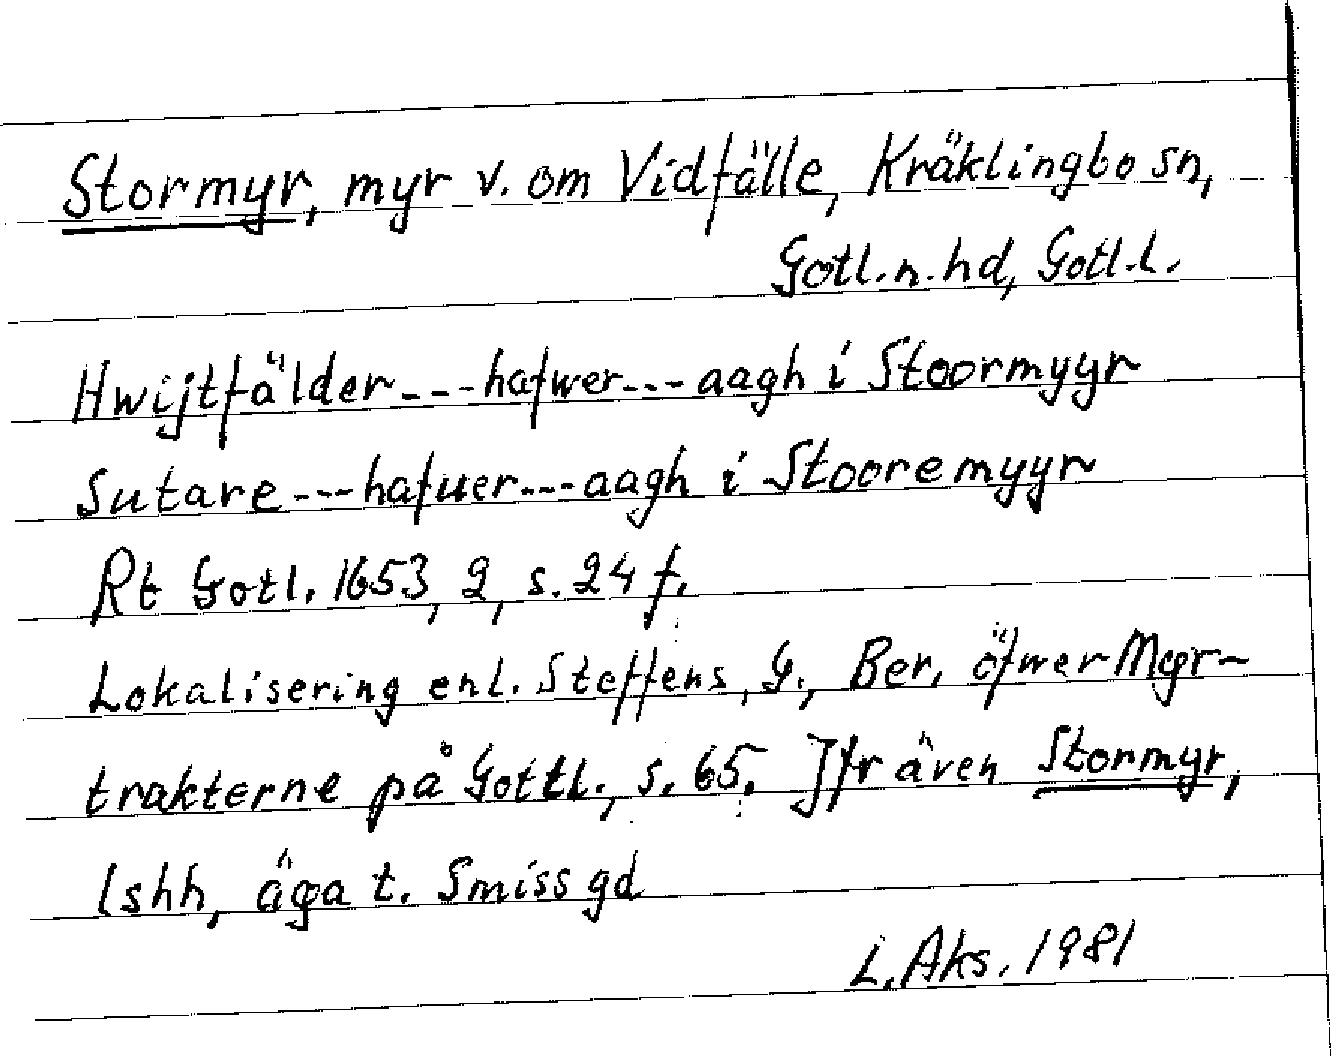 Stormyr, myr v. om Vidfälle, Kräklingbo sn,
Gotl. n. hd, Gotl. l.
Hwijtfälder---hafwer---aagh i Stoormyyr
Sutare---hafuer---aagh i Stooremyyr
Rt Gotl. 1653, 2, s. 24 f.
Lokalisering enl. Steffens, G., Ber. öfwer Myr-
trakterne på Gottl., s. 65. Jfr även Stormyr,
lshh, äga t. Smiss gd
L. Aks. 1981